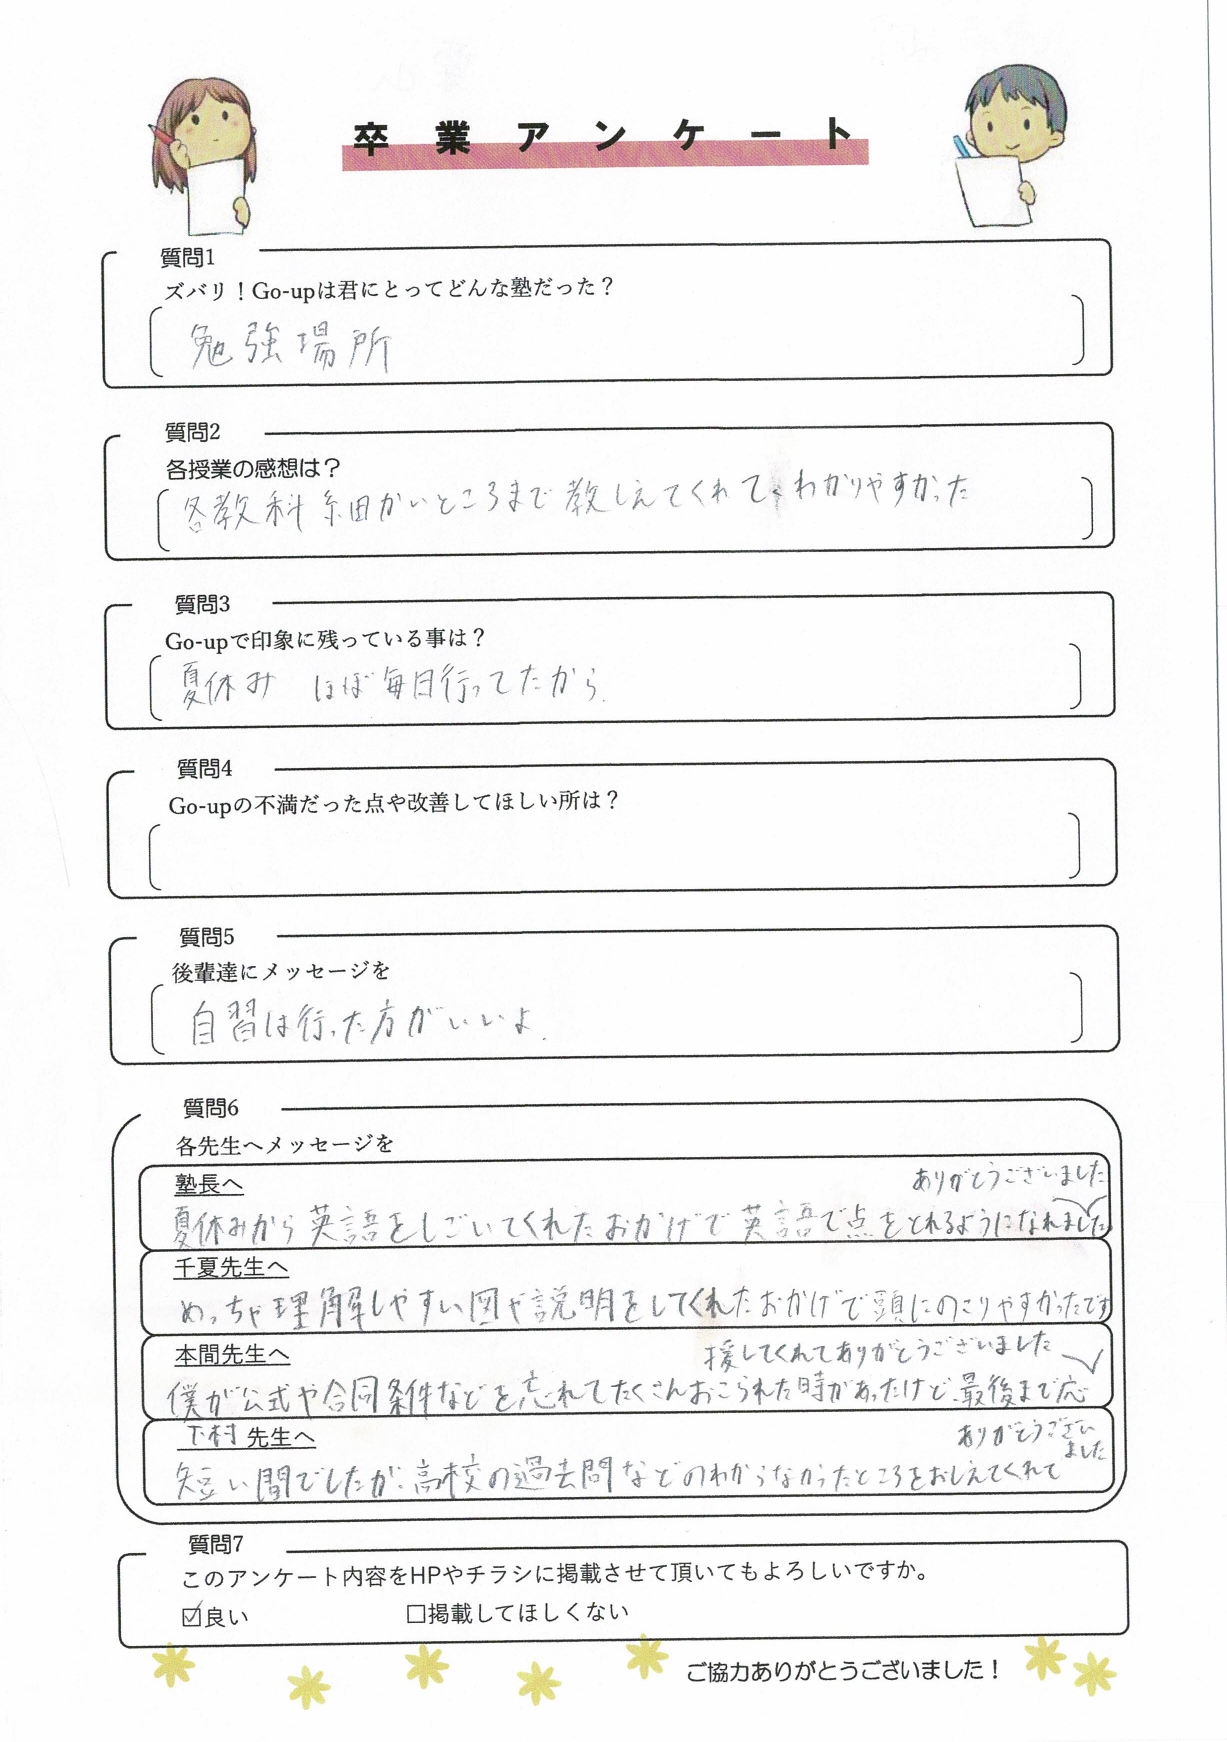 卒業アンケート
質問1
ズバリ！Go-upは君にとってどんな塾だった？
勉強場所
質問2
各授業の感想は？
各教科細かいところまで教しえてくれて、わかりやすかった
質問3
Go-upで印象に残っている事は？
夏休み ほぼ毎日行ってたから.
質問4
Go-upの不満だった点や改善してほしい所は？
質問5
後輩達にメッセージを
自習は行った方がいいよ.
質問6
各先生へメッセージを
塾長へ
夏休みから英語をしごいてくれたおかげで英語で点をとれるようになれました
ありがとうございました
千夏先生へ
めっちゃ理解しやすい図や説明をしてくれたおかげで頭にのこりやすかったです
本間先生へ
僕が公式や合同条件などを忘れてたくさんおこられた時があったけど、最後まで応
援してくれてありがとうございました
下村先生へ
短い間でしたが、高校の過去問などのわからなかったところをおしえてくれて
ありがとうござい
ました
質問7
このアンケート内容をHPやチラシに掲載させて頂いてもよろしいですか。
☑良い □掲載してほしくない
ご協力ありがとうございました！